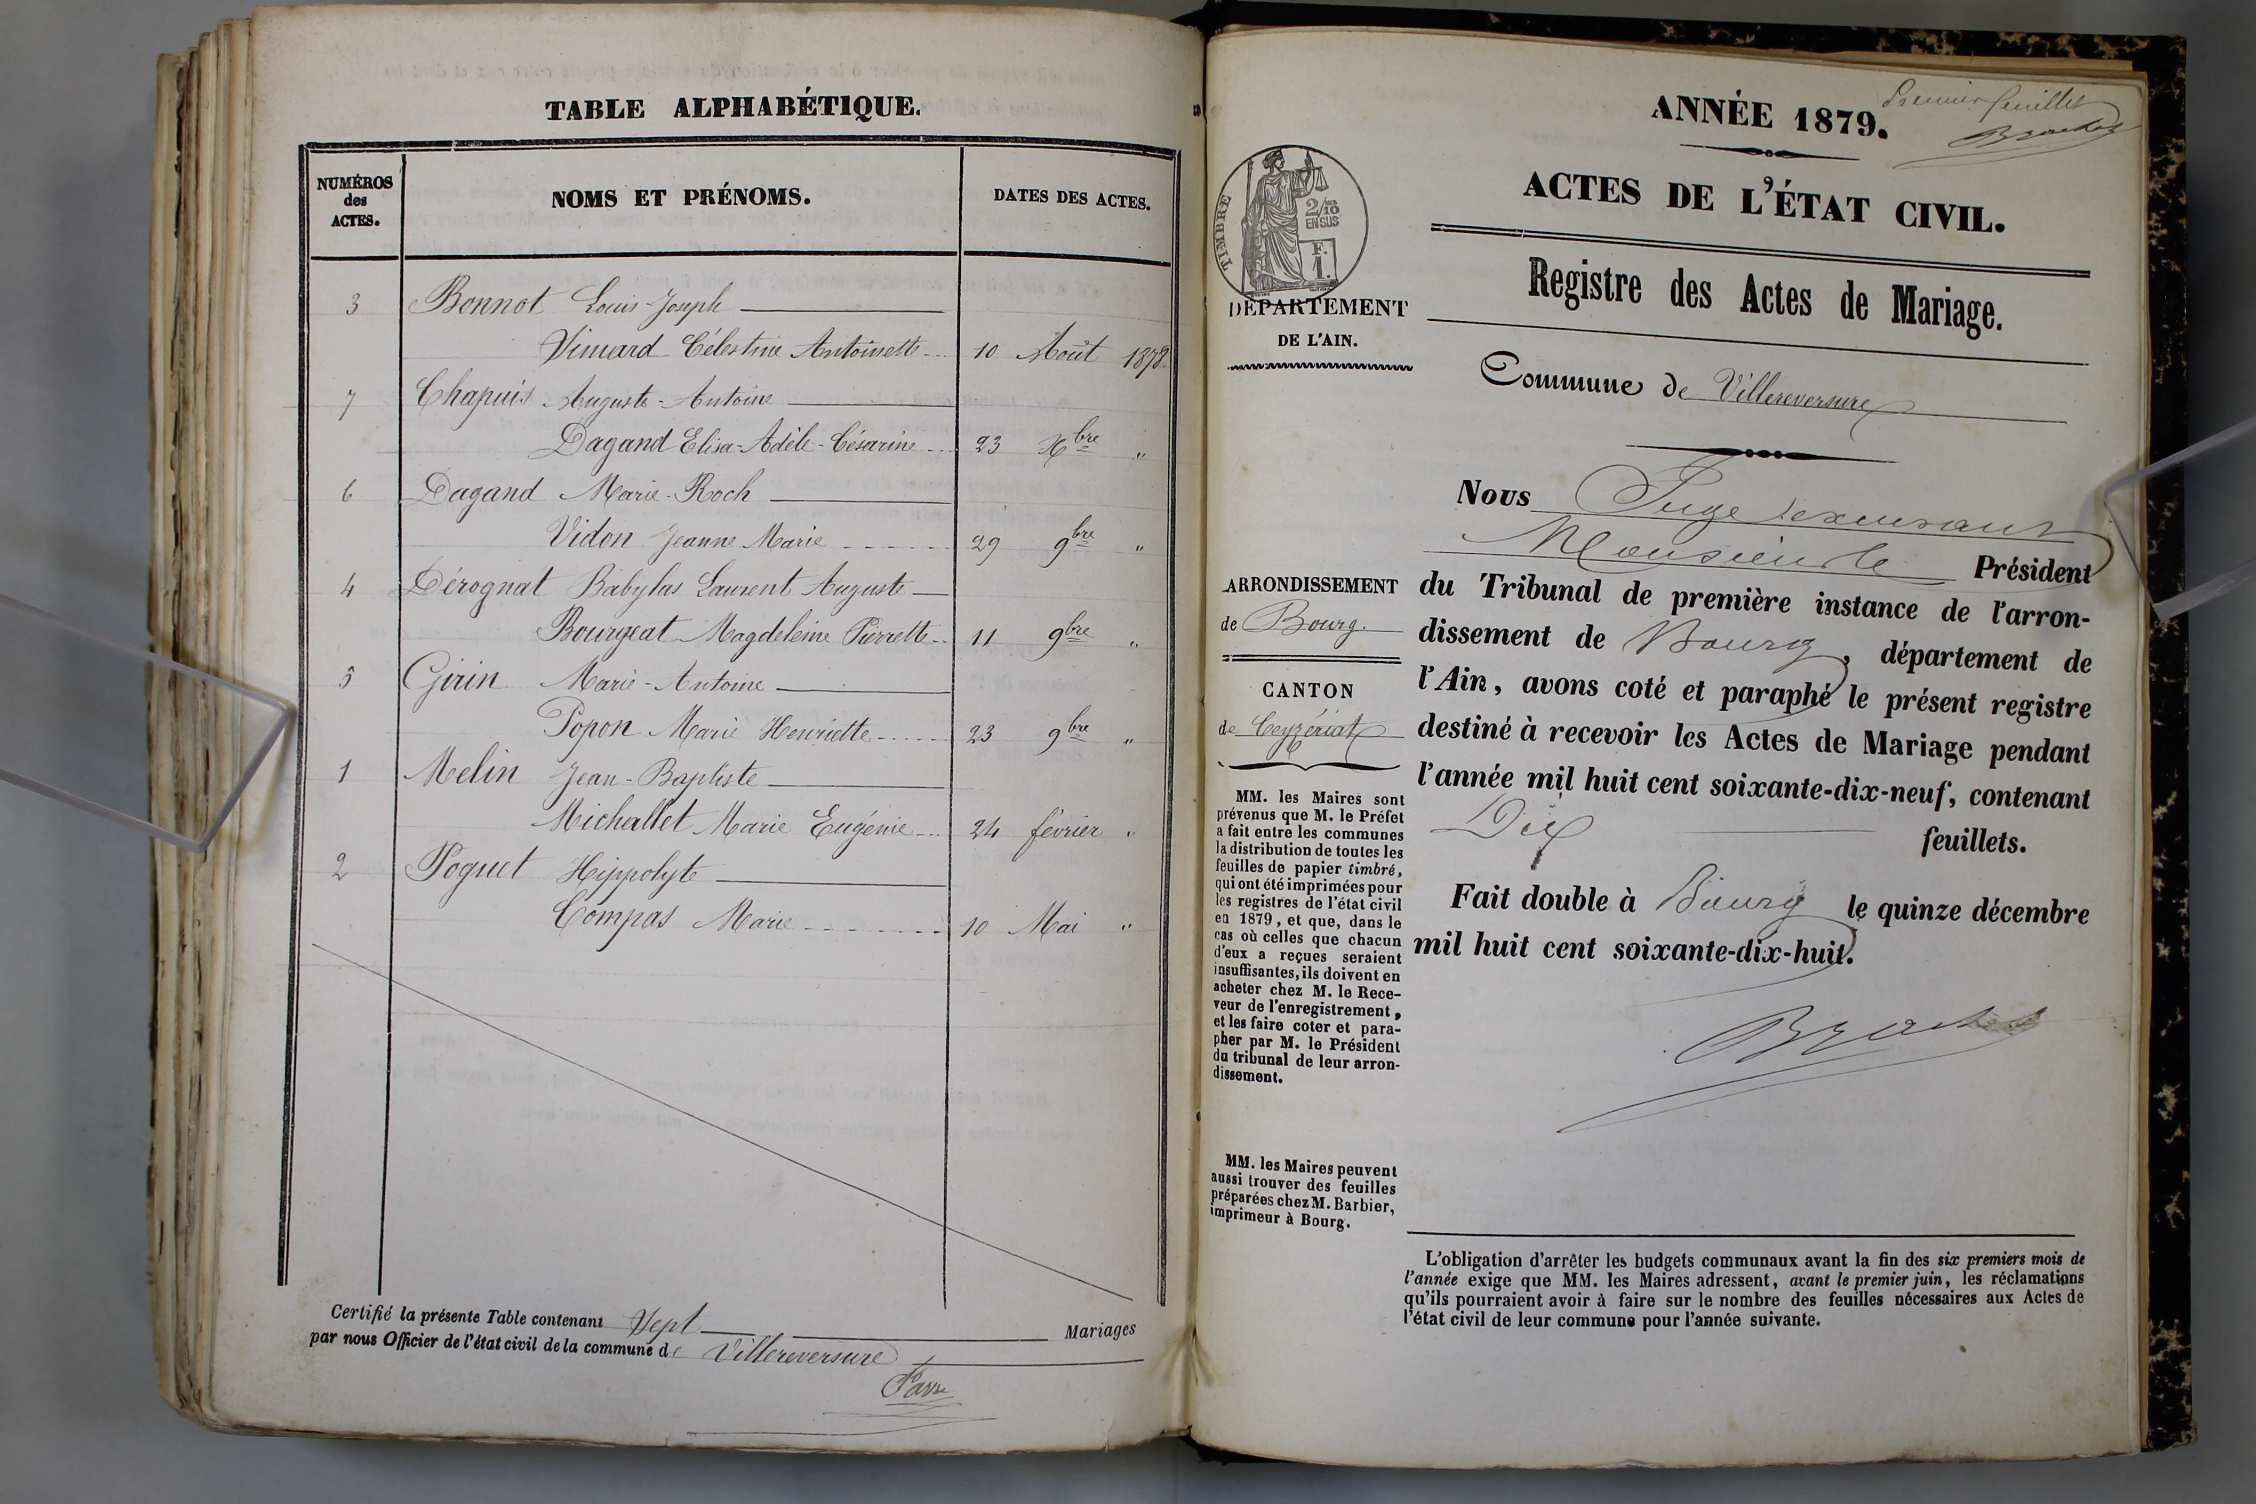 TABLE ALPHABÉTIQUE.
NUMÉROS des ACTES.
NOMS ET PRÉNOMS.
DATES DES ACTES.
3 Bonnot Louis Joseph
Vimard Célestine Antoinette 10 Août 1878.
7 Chapuis Auguste-Antoine
Dagand Elisa-Adèle-Césarine 23 Xbre "
6 Dagand Marie-Roch
Vidon Jeanne Marie 29 9bre "
4 Dérognat Babylas Laurent Auguste
Bourgeat Magdeleine Pierrette 11 9bre "
5 Girin Marie-Antoine
Popon Marie Henriette 23 9bre "
1 Melin Jean-Baptiste
Michallet Marie Eugénie 24 février "
2 Poguet Hippolyte
Compas Marie 10 Mai "
Certifié la présente Table contenant Sept Mariages
par nous Officier de l'état civil de la commune de Villereversure
Premier feuillet
ANNÉE 1879.
ACTES DE L'ÉTAT CIVIL.
TIMBRE
2/10 EN SUS
F. 1.
DÉPARTEMENT
DE L'AIN.
Registre des Actes de Mariage.
Commune de Villereversure
ARRONDISSEMENT
de Bourg.
CANTON
de Ceyzériat
MM. les Maires sont
prévenus que M. le Préfet
a fait entre les communes
la distribution de toutes les
feuilles de papier timbré,
qui ont été imprimées pour
les registres de l'état civil
en 1879, et que, dans le
cas où celles que chacun
d'eux a reçues seraient
insuffisantes, ils doivent en
acheter chez M. le Rece-
veur de l'enregistrement,
et les faire coter et para-
pher par M. le Président
du tribunal de leur arron-
dissement.
MM. les Maires peuvent
aussi trouver des feuilles
préparées chez M. Barbier,
imprimeur à Bourg.
Nous Juge
Monsieur le Président
du Tribunal de première instance de l'arron-
dissement de Bourg, département de
l'Ain, avons coté et paraphé le présent registre
destiné à recevoir les Actes de Mariage pendant
l'année mil huit cent soixante-dix-neuf, contenant
Dix feuillets.
Fait double à Bourg le quinze décembre
mil huit cent soixante-dix-huit.
L'obligation d'arrêter les budgets communaux avant la fin des six premiers mois de
l'année exige que MM. les Maires adressent, avant le premier juin, les réclamations
qu'ils pourraient avoir à faire sur le nombre des feuilles nécessaires aux Actes de
l'état civil de leur commune pour l'année suivante.